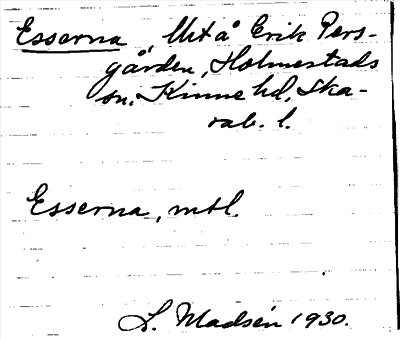 Esserna, Utå Erik Pers-
gården, Holmestads
sn, Kinne hd, Ska-
rab. l.
Esserna, mtl.
L. Madsén 1930.